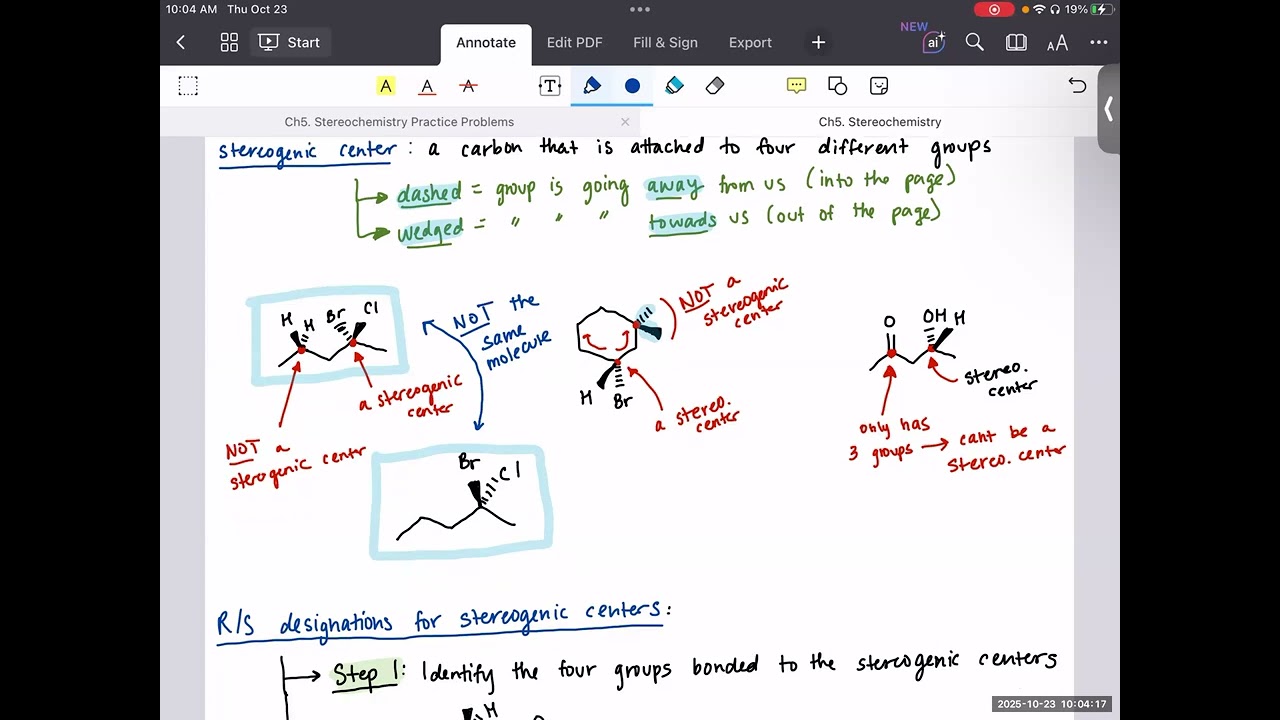 10:04 AM Thu Oct 23
19%
Start
Annotate
Edit PDF
Fill & Sign
Export
NEW
ai
AA
A A A T
Ch5. Stereochemistry Practice Problems
Ch5. Stereochemistry
stereogenic center : a carbon that is attached to four different groups
dashed = group is going away from us (into the page)
wedged = " " " towards us (out of the page)
H H Br Cl
NOT a
sterogenic centr
a stereogenic
center
NOT the
same
molecule
Br Cl
NOT a
stereogenic
center
H Br
a stereo.
center
O OH H
stereo.
center
only has
3 groups → cant be a
stereo. center
R/S designations for stereogenic centers:
Step 1: Identify the four groups bonded to the stereogenic centers
H
2025-10-23 10:04:17